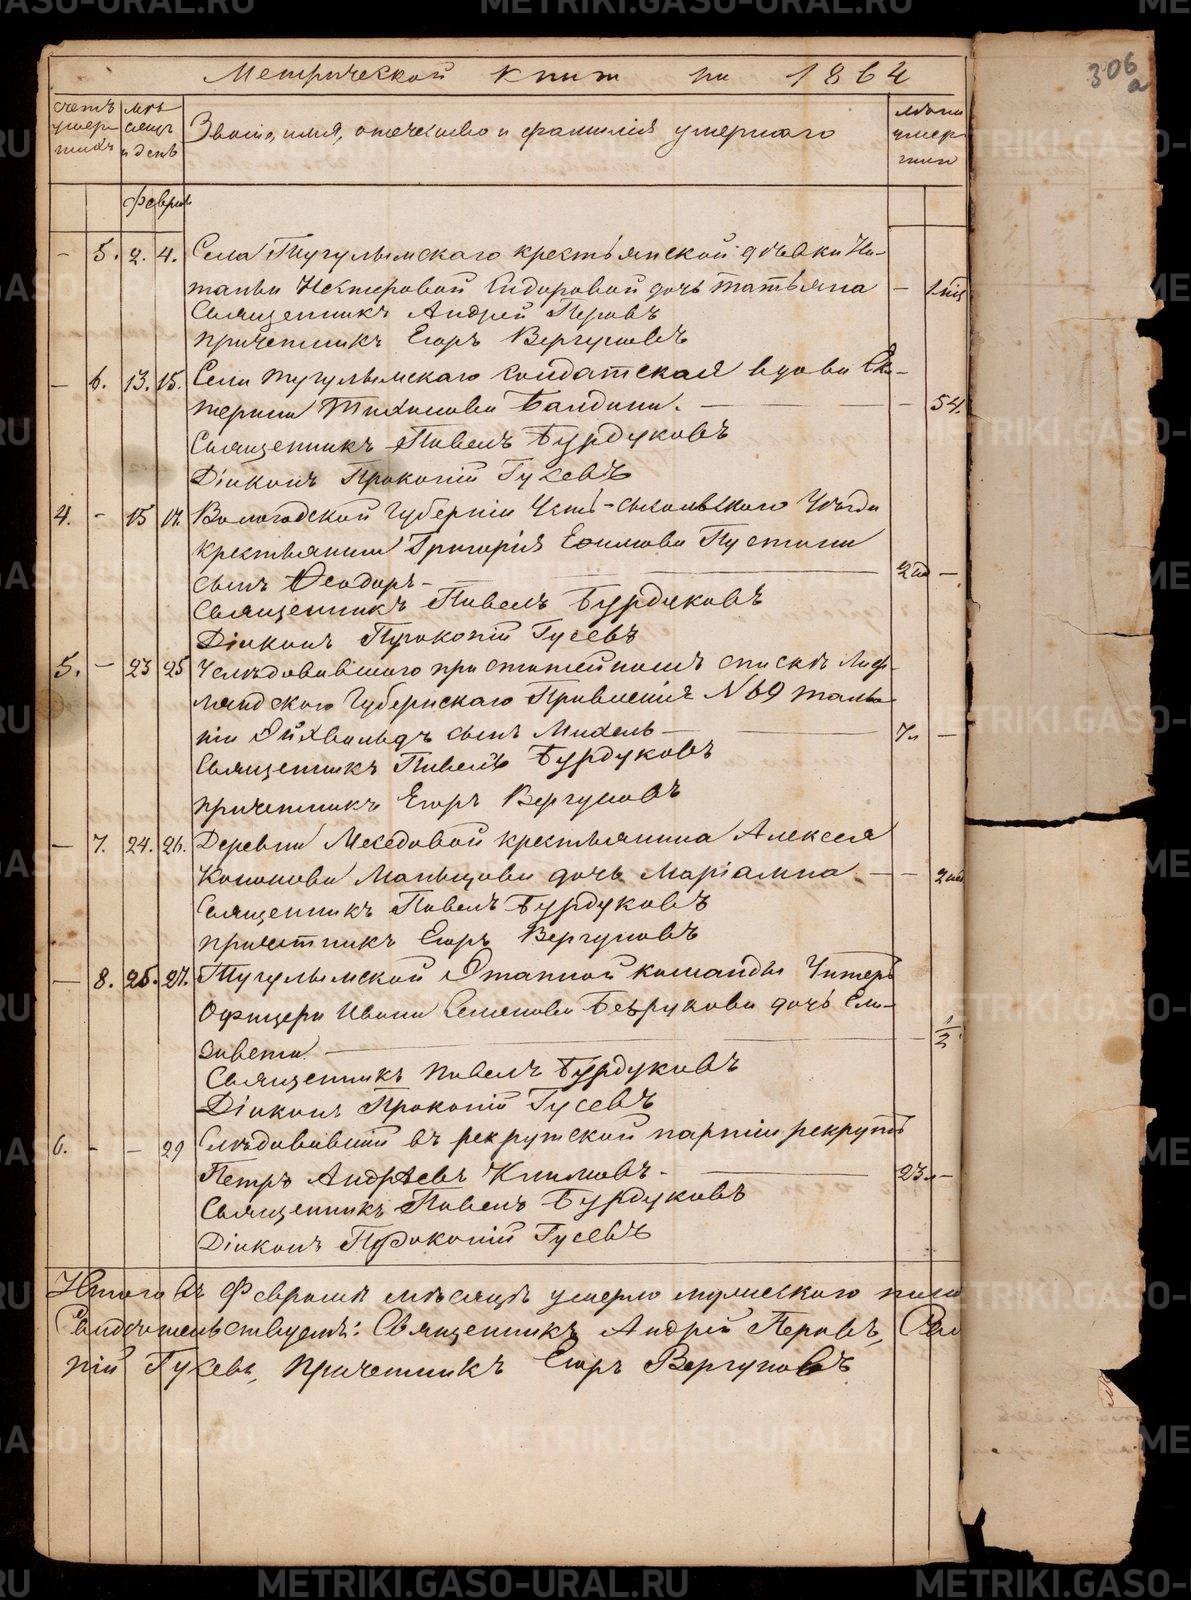 306
а
Метрической книги на 1864
счетъ умершихъ
мѣсяцъ и день
Званіе, имя, отечество и фамилія умершаго
лѣта умершихъ
Февраль
– 5. 2. 4. Села Тугулымскаго крестьянской дѣвки На-
тальи Сидоровой дочь Татьяна –
Священникъ Андрей Перовъ
Причетникъ Егоръ Вергуновъ
– 6. 13. 15. Села Тугулымскаго солдатская вдова Ека-
терина Тихонова Балдина. – – 54.
Священникъ Павелъ Бурдуковъ
Діаконъ Прокопій Гусевъ
4. – 15 17. Вологодской Губерніи Усть-сысольскаго Уѣзда
крестьянина Григорія Ефимова Пустина
сынъ Ѳеодоръ – –
Священникъ Павелъ Бурдуковъ
Діаконъ Прокопій Гусевъ
5. – 23 25 Услѣдовавшаго при статейномъ спискѣ Лиф-
ляндскаго Губернскаго Правленія №69
сынъ Михель – 7л –
Священникъ Павелъ Бурдуковъ
Причетникъ Егоръ Вергуновъ
– 7. 24. 26. Деревни Мехедовой крестьянина Алексея
Кононова Мальцова дочь Маріамна – –
Священникъ Павелъ Бурдуковъ
Причетникъ Егоръ Вергуновъ
– 8. 25. 27. Тугулымской Этапной команды Унтеръ
Офицера Ивана Семенова дочь Ели-
завета. – – 1/2
Священникъ Павелъ Бурдуковъ
Діаконъ Прокопій Гусевъ
6. – – 29 Слѣдовавшій въ рекрутской партіи рекрутъ
Петръ Андреевъ Климовъ – 23л –
Священникъ Павелъ Бурдуковъ
Діаконъ Прокопій Гусевъ
Итого въ Февралѣ мѣсяцѣ умерло мужескаго пола
Свидѣтельствуемъ: Священникъ Андрей Перовъ,
пій Гусевъ, Причетникъ Егоръ Вергуновъ
METRIKI.GASO-URAL.RU